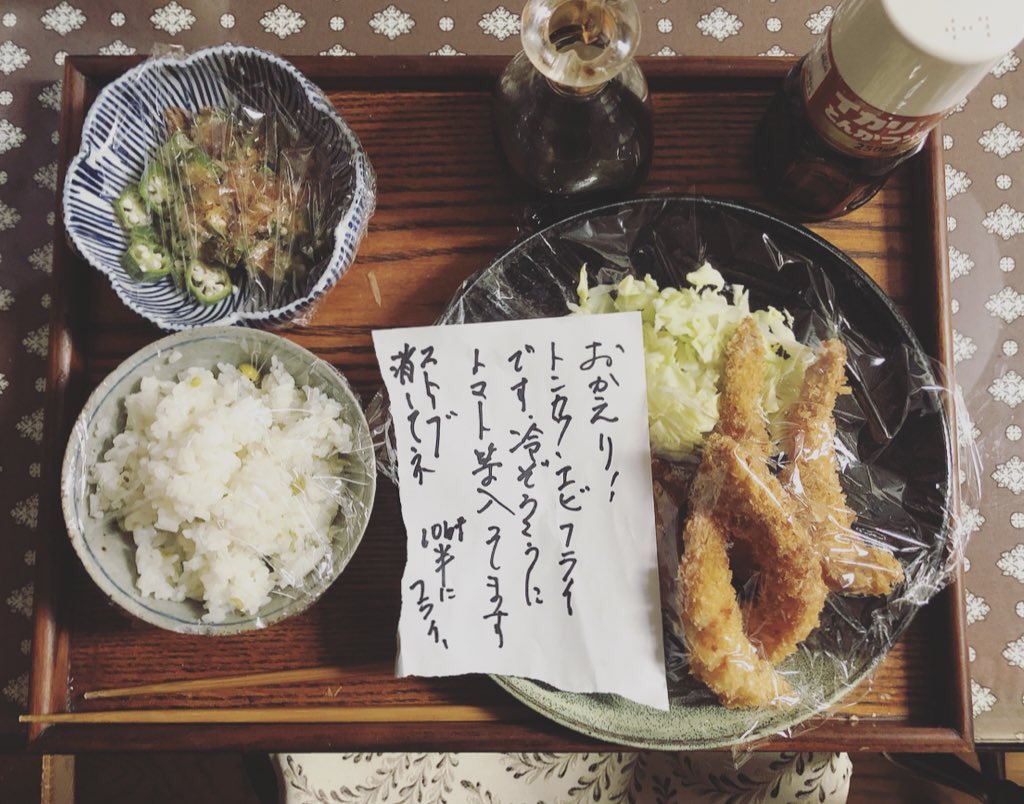 おかえり!!
トンカツ、エビフライ
です.冷ぞうこに
トマト等入ってます
ストーブ
消してネ
10時半に
イカリ
とんかつソ
250